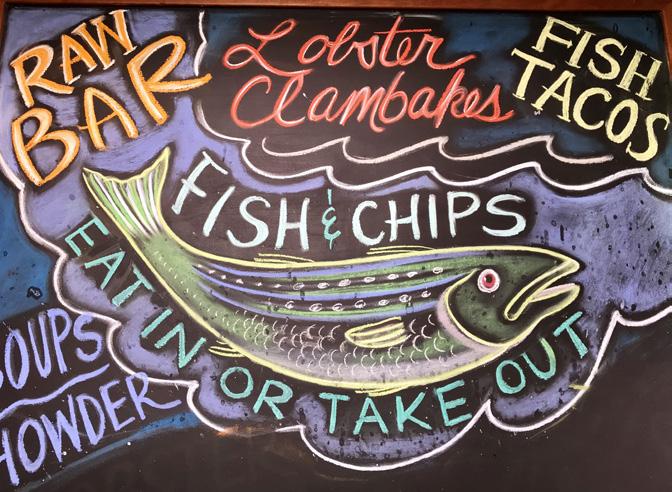 RAW
BAR
Lobster
Clambakes
FISH
TACOS
FISH & CHIPS
EAT IN OR TAKE OUT
SOUPS
HOWDER